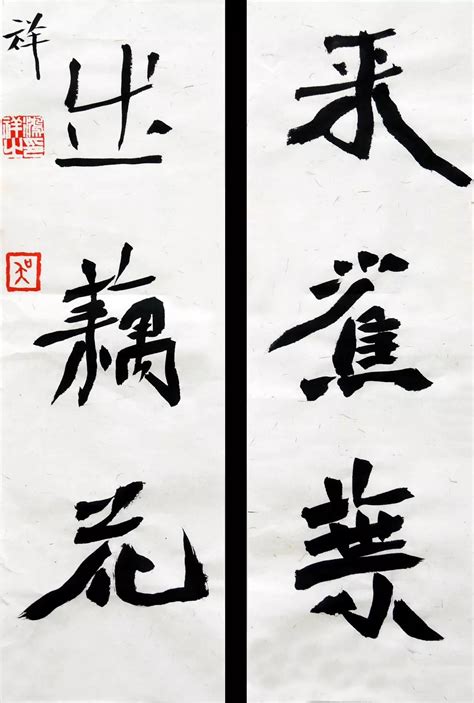 采蕉葉
出藕花
祥